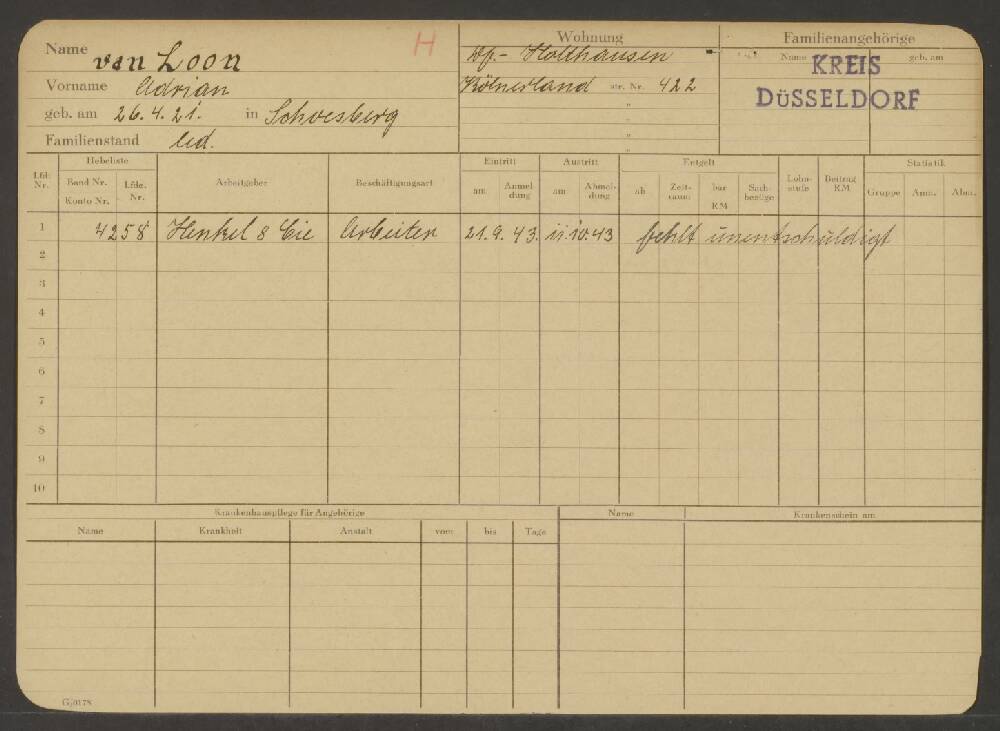 Name van Loon
H
Vorname Adrian
geb. am 26.4.21. in Schoesberg
Familienstand led.
Wohnung
Df.- Holthausen
Kölnerland str. Nr. 422
"
"
"
Familienangehörige
Name geb. am
KREIS
DÜSSELDORF
Lfd. Nr. Hebeliste Arbeitgeber Beschäftigungsart Eintritt Austritt Entgelt Lohnstufe Beitrag RM Statistik
Band Nr. Konto Nr. Lfde. Nr. am Anmeldung am Abmeldung ab Zeitraum bar RM Sachbezüge Gruppe Anm. Abm.
1 4258 Henkel & Cie Arbeiter 21.9.43. 11.10.43 fehlt unentschuldigt
2
3
4
5
6
7
8
9
10
Krankenhauspflege für Angehörige
Name Krankheit Anstalt vom bis Tage
Name Krankenschein am
G/0178